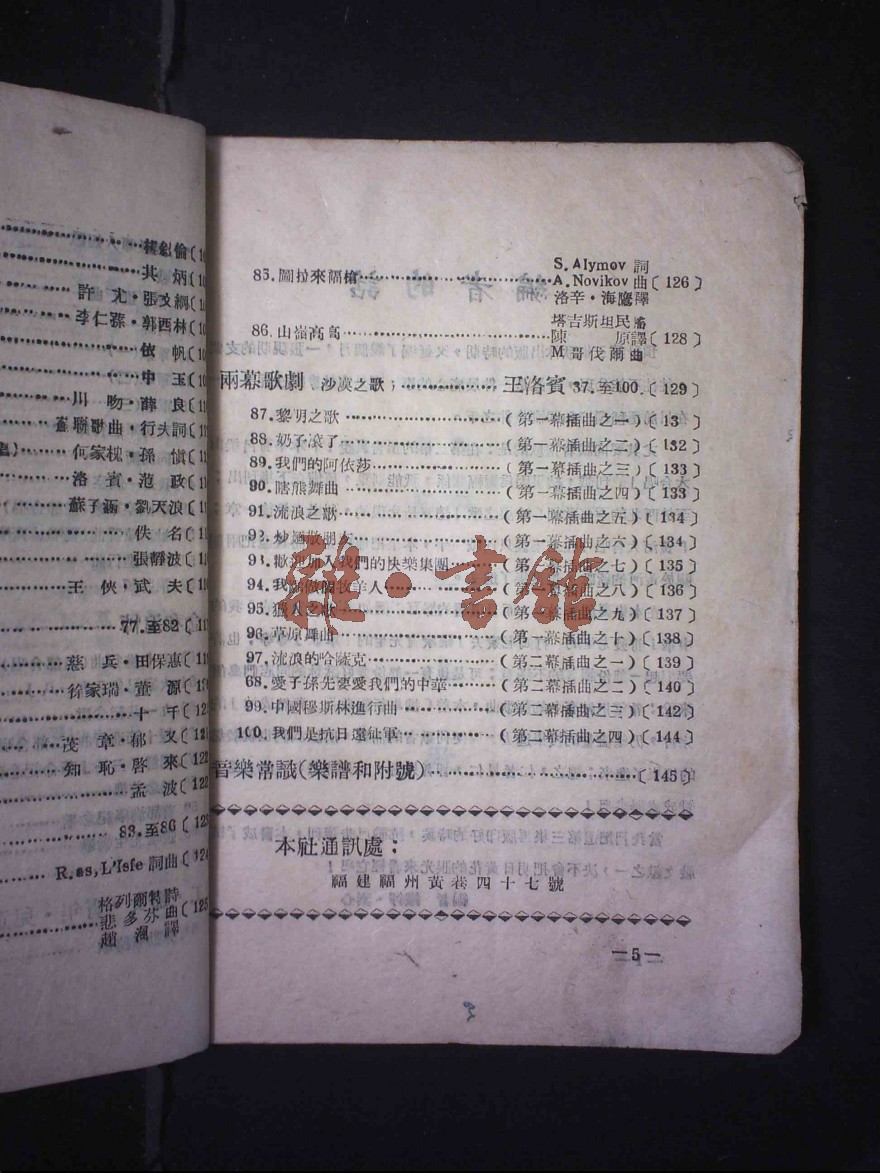 其炳
許尤·張文綱
李仁蓀·郭西林
依帆
申玉
川吻·薛良
聯歌曲·行夫詞
何家槐·孫愼
洛賓·范政
蘇子涵·劉天浪
佚名
張靜波
王俠·武夫
77.至82
慈兵·田保惠
徐家瑞·董源
十千
茂章·郁文
知恥·啓來〔122
孟波
83.至86
R.es, L'Isfe 詞曲〔124
格列爾特詩
悲多芬曲〔125
趙渢譯
S. Alymov 詞
85.圖拉來福槍 A. Novikov 曲〔126〕
洛辛·海鷹譯
塔吉斯坦民謠
86.山嶺高高 陳原譯〔128〕
M哥伐爾曲
兩幕歌劇 沙漠之歌; 王洛賓 37.至100.〔129〕
87.黎明之歌 (第一幕插曲之一)〔13
88.奶子滾了 (第一幕插曲之二)〔132
89.我們的阿依莎 (第一幕插曲之三)〔133
90.瞎熊舞曲 (第一幕插曲之四)〔133
91.流浪之歌 (第一幕插曲之五)〔134
92.炒麵敬朋友 (第一幕插曲之六)〔134
93.歡迎加入我們的快樂集團 (第一幕插曲之七)〔135
94.我願做個牧羊人 (第一幕插曲之八)〔136
95.獵人之歌 (第一幕插曲之九)〔137
96.草原舞曲 (第一幕插曲之十)〔138
97.流浪的哈薩克 (第二幕插曲之一)〔139
68.愛子孫先要愛我們的中華 (第二幕插曲之二)〔140
99.中國穆斯林進行曲 (第二幕插曲之三)〔142
100.我們是抗日遠征軍 (第二幕插曲之四)〔144
音樂常識(樂譜和附號) 〔145〕
本社通訊處:
福建福州黃巷四十七號
—5—
雅·書館